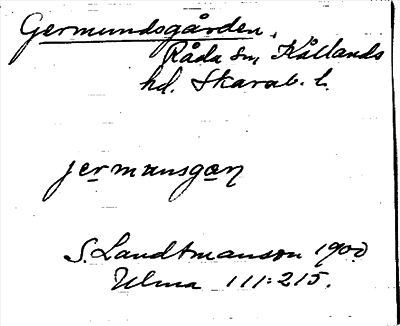 Germundsgården.
Råda sn, Kållands
hd. Skarab. l.
jermansgan
S. Landtmanson 1900
Ulma 111:215.